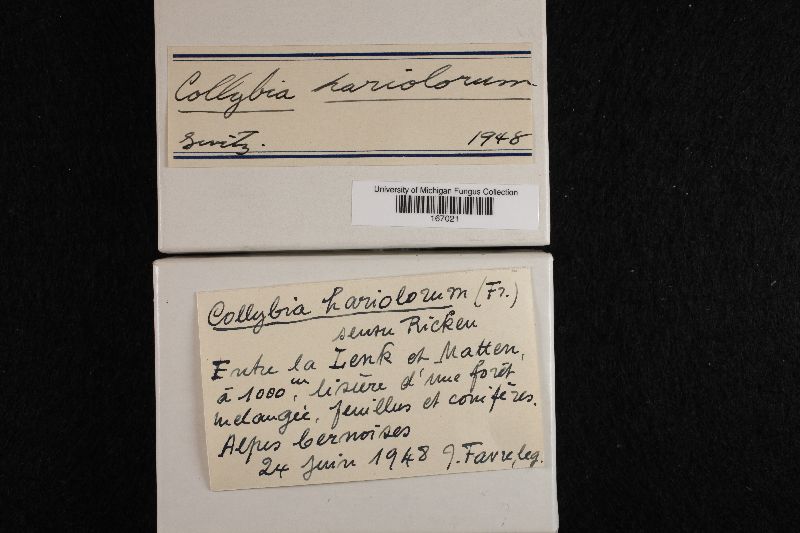 Collybia hariolorum
Switz. 1948
University of Michigan Fungus Collection
167021
Collybia hariolorum (Fr.)
sensu Ricken
Entre la Lenk et Matten,
à 1000 m, lisière d'une forêt
mélangée, feuillus et conifères.
Alpes bernoises
24 juin 1948 J. Favre, leg.